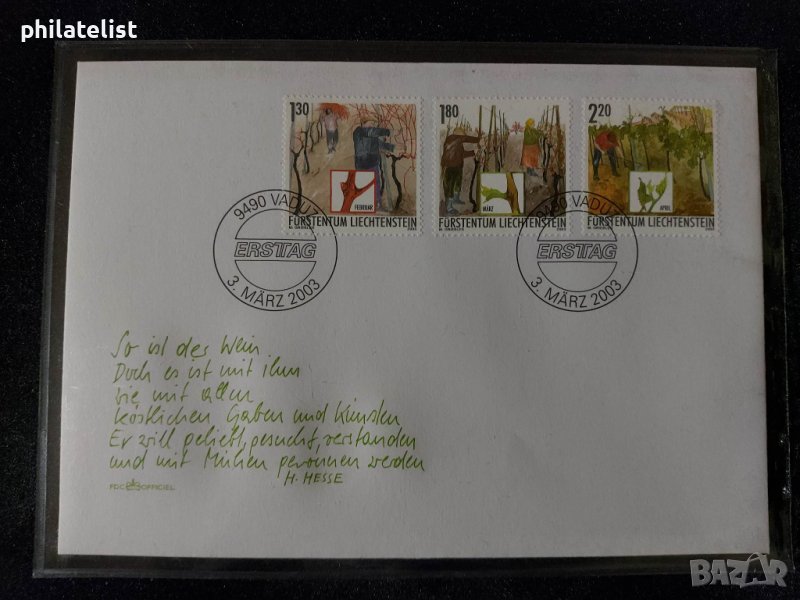 philatelist
1.30
FEBRUAR
FÜRSTENTUM LIECHTENSTEIN
1.80
MÄRZ
FÜRSTENTUM LIECHTENSTEIN
2.20
APRIL
FÜRSTENTUM LIECHTENSTEIN
9490 VADUZ
ERSTTAG
3. MÄRZ 2003
9490 VADUZ
ERSTTAG
3. MÄRZ 2003
So ist der Wein
Doch es ist mit ihm
wie mit allen
köstlichen Gaben und Künsten
Er will geliebt, gesucht, verstanden
und mit Mühen gewonnen werden
H. HESSE
FDC OFFICIEL
BAZAR
bazar.bg